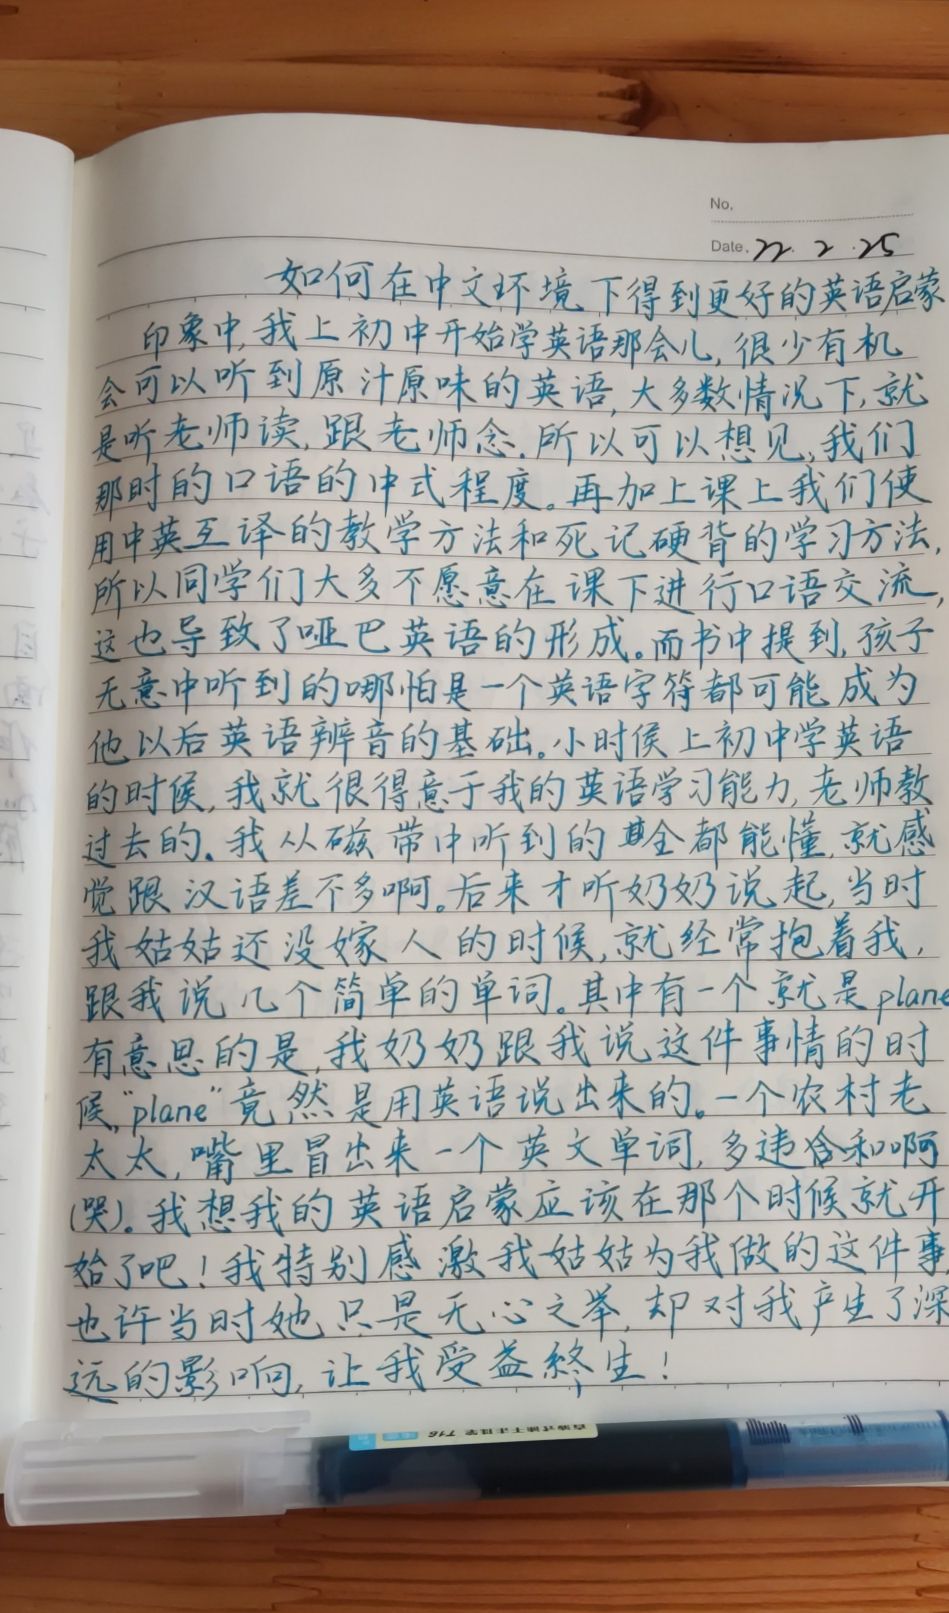 No.
Date. 22. 2. 25
如何在中文环境下得到更好的英语启蒙
印象中,我上初中开始学英语那会儿,很少有机
会可以听到原汁原味的英语,大多数情况下,就
是听老师读,跟老师念.所以可以想见,我们
那时的口语的中式程度。再加上课上我们使
用中英互译的教学方法和死记硬背的学习方法,
所以同学们大多不愿意在课下进行口语交流,
这也导致了哑巴英语的形成。而书中提到,孩子
无意中听到的哪怕是一个英语字符都可能成为
他以后英语辨音的基础。小时候上初中学英语
的时候,我就很得意于我的英语学习能力,老师教
过去的。我从磁带中听到的全都能懂,就感
觉跟汉语差不多啊。后来才听奶奶说起,当时
我姑姑还没嫁人的时候,就经常抱着我,
跟我说几个简单的单词。其中有一个就是plane
有意思的是,我奶奶跟我说这件事情的时
候,"plane"竟然是用英语说出来的。一个农村老
太太,嘴里冒出来一个英文单词,多违合和啊
(哭)。我想我的英语启蒙应该在那个时候就开
始了吧!我特别感激我姑姑为我做的这件事,
也许当时她只是无心之举,却对我产生了深
远的影响,让我受益终生!
716